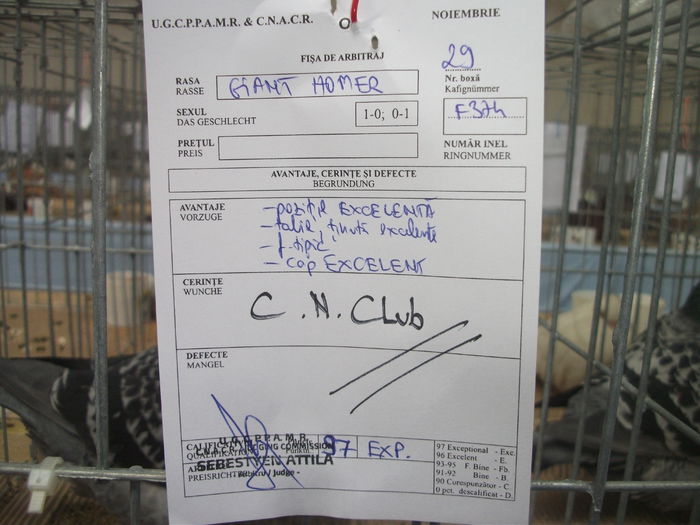 U.G.C.P.P.A.M.R. & C.N.A.C.R.
NOIEMBRIE
FIȘA DE ARBITRAJ
29
RASA
RASSE
GIANT HOMER
Nr. boxă
Kafignümmer
SEXUL
DAS GESCHLECHT
1-0; 0-1
F374
PREȚUL
PREIS
NUMĂR INEL
RINGNUMMER
AVANTAJE, CERINȚE ȘI DEFECTE
BEGRUNDUNG
AVANTAJE
VORZUGE
- poziție EXCELENTĂ
- talie, ținută excelente
- f. tipic
- cap EXCELENT
CERINȚE
WUNCHE
C.N. Club
DEFECTE
MANGEL
U.G.C.P.P.A.M.R.
JUDGING COMMISSION
SEBESTYEN ATTILA
Arbitru / Judge
PREISRICHTER
97 EXP.
97 Exceptional - Exc.
96 Excelent - E.
93-95 F. Bine - Fb.
91-92 Bine - B.
90 Corespunzător - C
0 pct. descalificat - D.